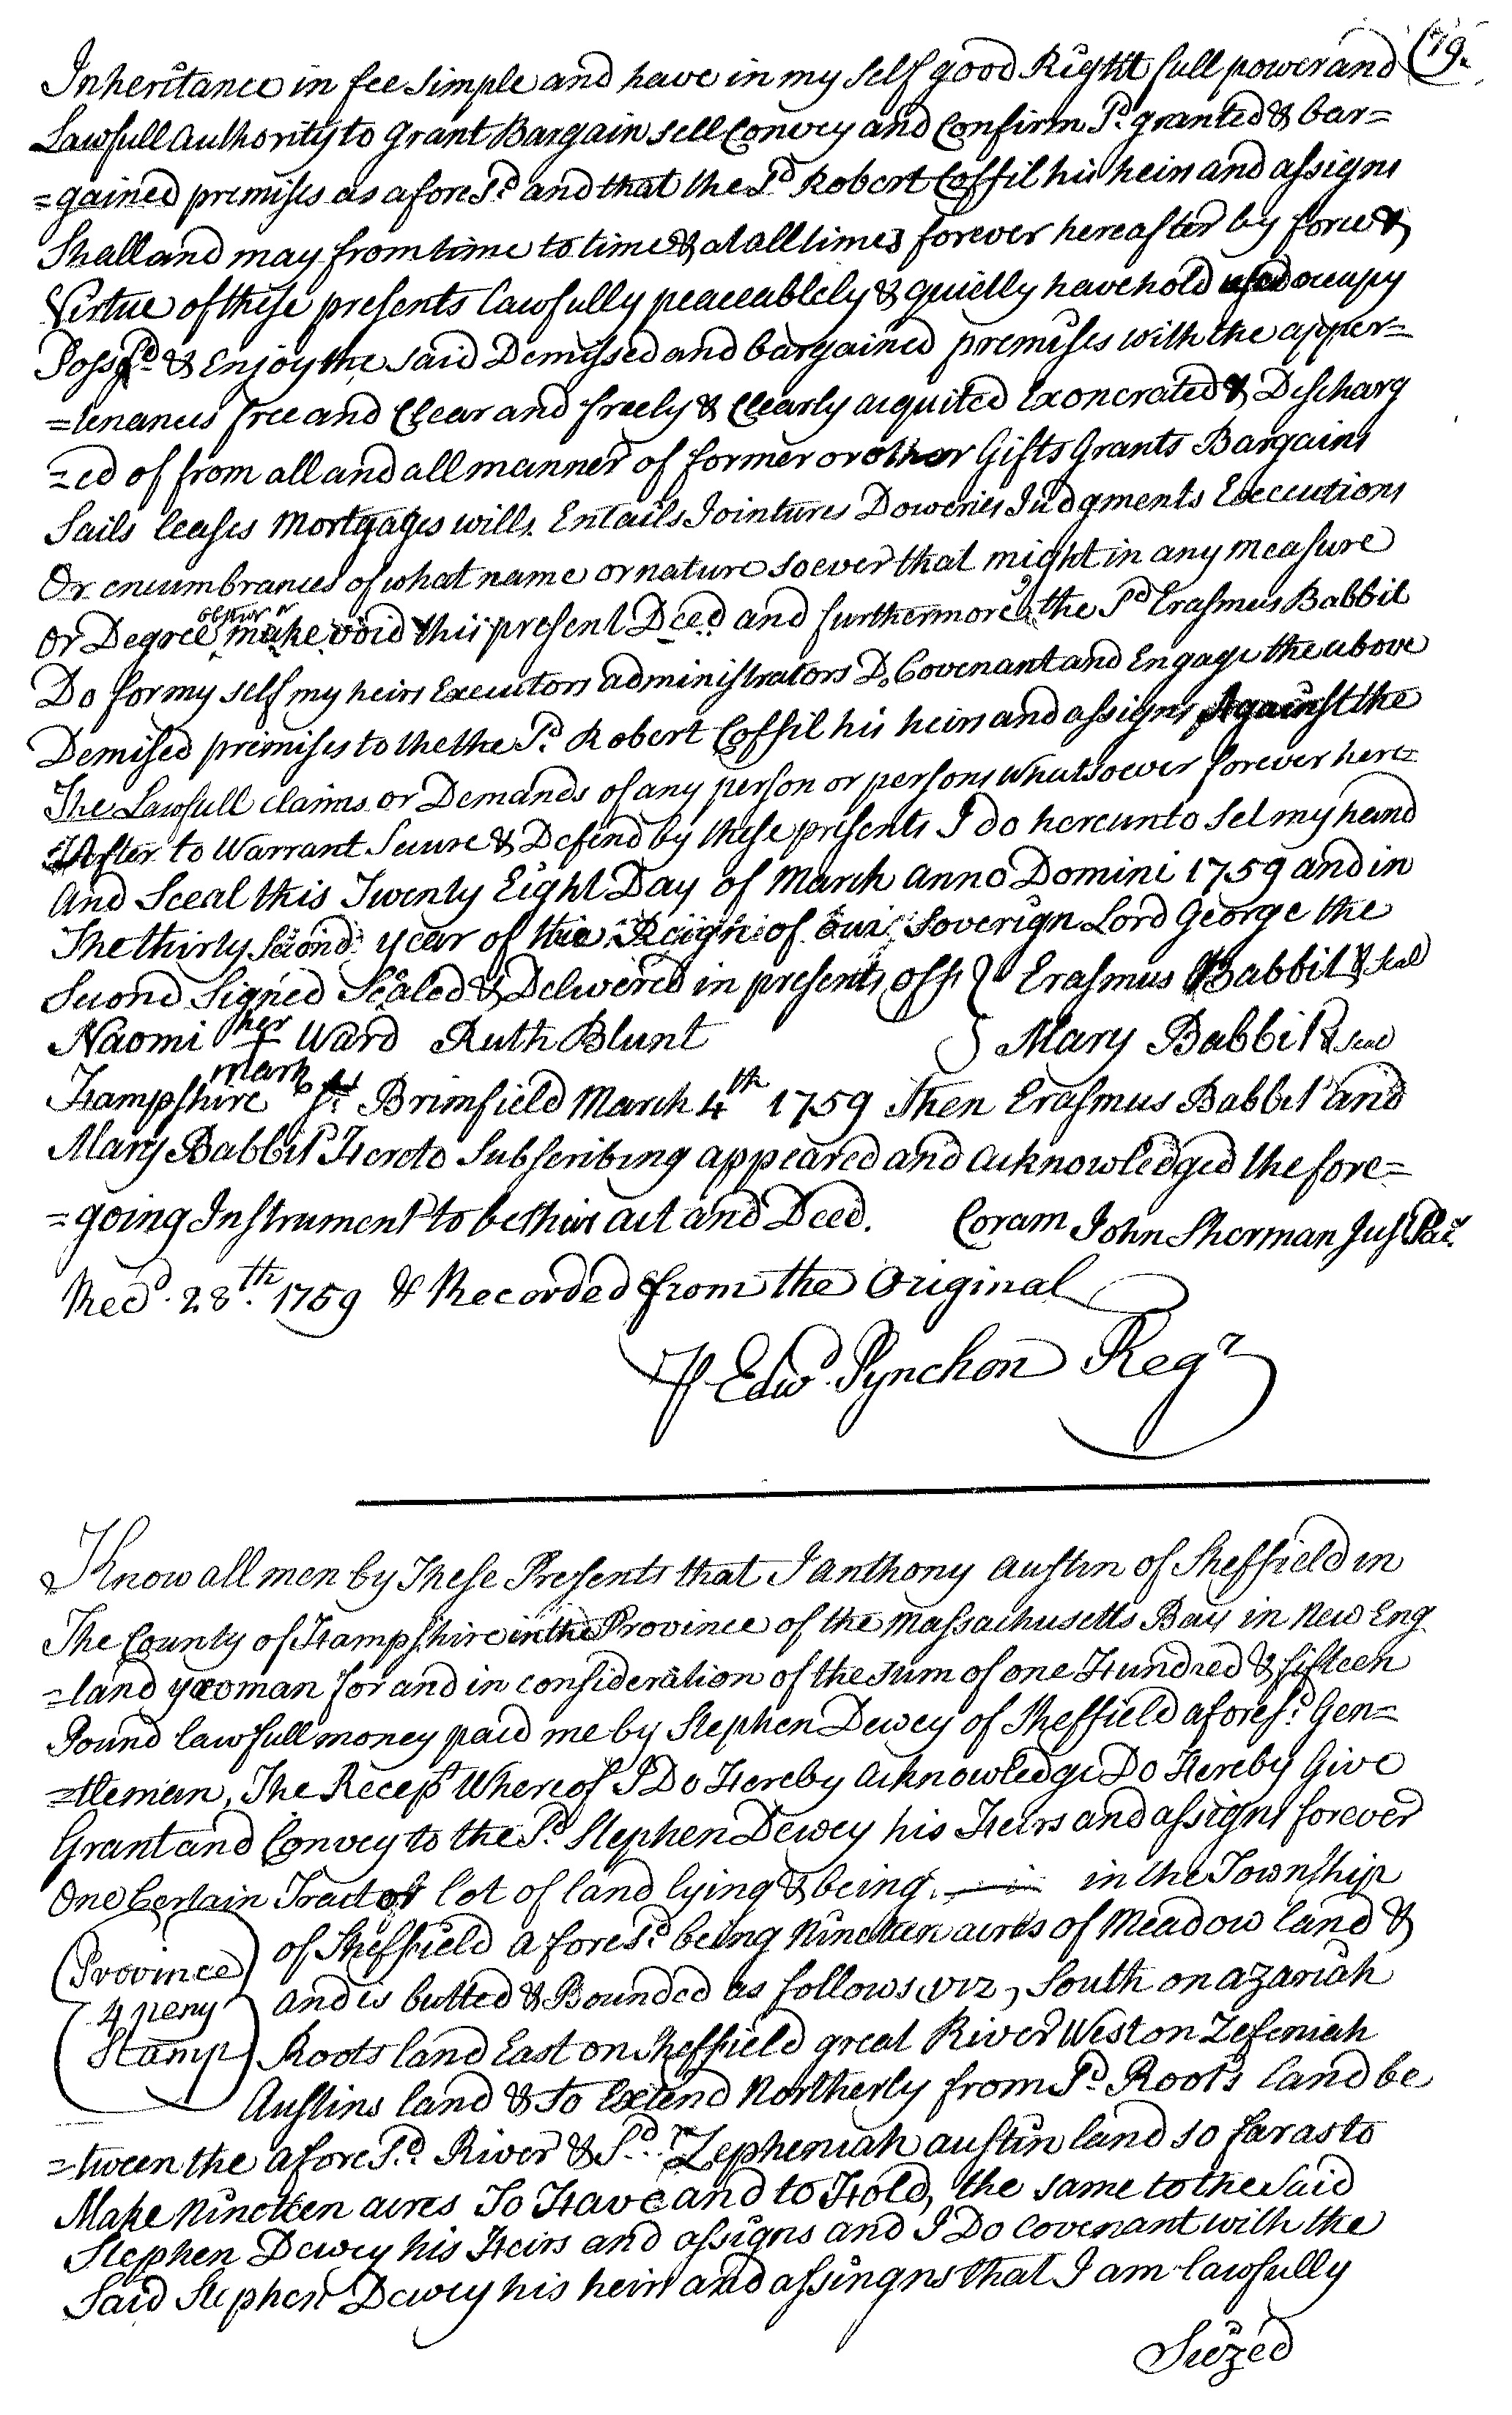 79.
Inheritance in fee simple and have in my self good Right full power and
Lawfull Authority to Grant Bargain sell Convey and Confirm Sd. granted & bar=
=gained premises as aforeSd. and that the Sd Robert Coffil his heirs and assigns
Shall and may from time to time & at all times forever hereafter by force &
Virtue of these presents lawfully peaceablely & quietly have hold use occupy
Possd. & Enjoy the said Demissed and bargained premises with the apper=
=tenances free and Clear and freely & Clearly acquited Exonerated & Discharg
=ed of from all and all manner of former or other Gifts Grants Bargains
Sails leases Mortgages wills Entails Jointures Doweries Judgments Executions
Or encumbrances of what name or nature soever that might in any measure
or Degree obstur or make void this present Deed and furthermore the Sd Erasmus Babbit
Do for my self my heirs Executors administrators Do Covenant and Engage the above
Demised premises to the the Sd. Robert Coffil his heirs and assigns Against the
The Lawfull claims or Demands of any person or persons whatsoever forever here=
After to Warrant Secure & Defend by these presents I do hereunto set my hand
And Sceal this Twenty Eight Day of March anno Domini 1759 and in
The thirty second year of the Reign of our Soverign Lord George the
Second Signed Sealed & Delivered in presents off } Erasmus Babbit & Seal
Naomi her mark Ward Ruth Blunt } Mary Babbit & Seal
Hampshire Ss. Brimfield March 4th 1759 Then Erasmus Babbit and
Mary Babbit Hereto Subscribing appeared and acknowledged the fore=
=going Instrument to be their act and Deed. Coram John Sherman Just Pac.
Recd. 28th. 1759 & Recorded from the Original
Edwd. Pynchon Regr
Know all men by These Presents that I anthony austin of Sheffield in
The County of Hampshire in the Province of the Massachusetts Bay in New Eng
=land yeoman for and in consideration of the sum of one Hundred & fifteen
Pound lawfull money paid me by Stephen Dewey of Sheffield afores.d Gen=
=tleman, The Recept Whereof I Do Hereby Acknowledge Do Hereby Give
Grant and Convey to the Sd. Stephen Dewey his Heirs and assigns forever
One Certain Tract or lot of land lying & being in the Township
of Sheffield aforeSd. being Nineteen acres of Meadow land &
Province
and is butted & Bounded as follows viz, South on azariah
4 peny
Roots land East on Sheffield great River West on Zefeniah
Stamp
Austins land & to Extend Northerly from Sd. Roots land be
=tween the aforeSd. River & Sd. Zepheniah austin land so far as to
Make Nineteen acres To Have and to Hold, the same to the Said
Stephen Dewey his Heirs and assigns and I Do Covenant with the
Said Stephen Dewey his heirs and assingns that I am lawfully
Siezed